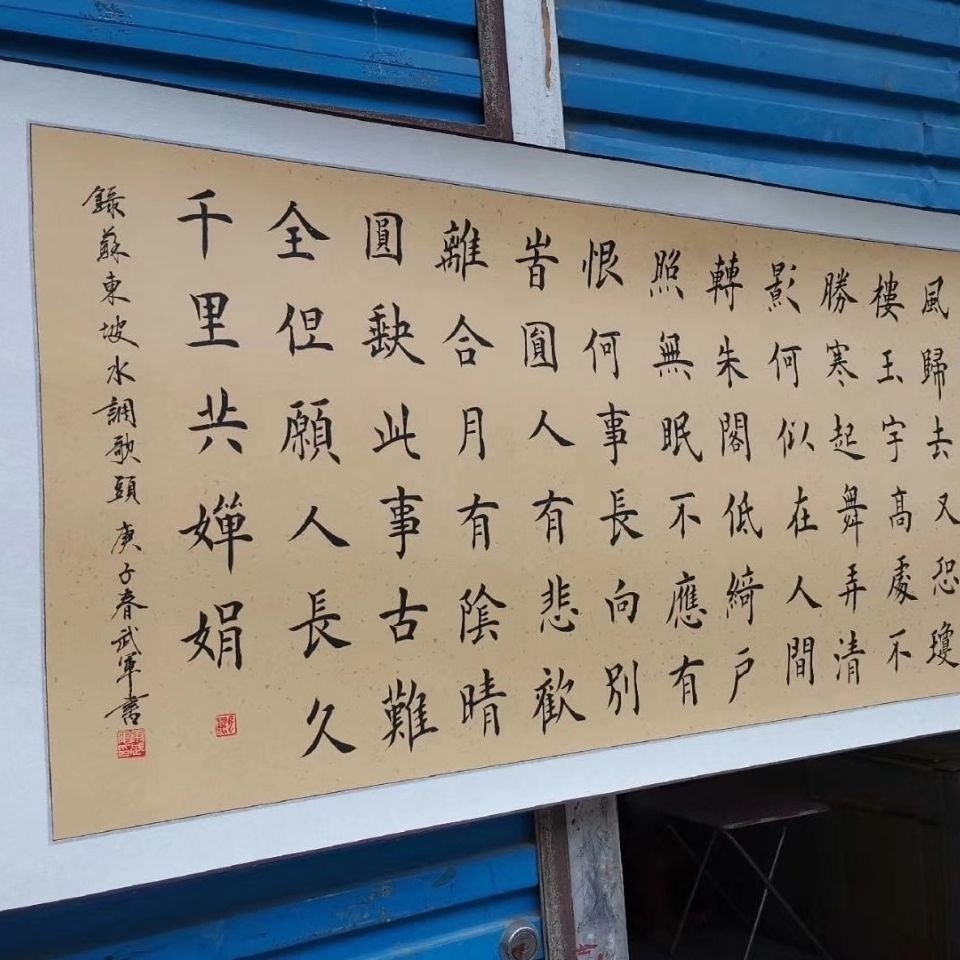 風歸去又恐瓊
樓玉宇高處不
勝寒起舞弄清
影何似在人間
轉朱閣低綺戶
照無眠不應有
恨何事長向別
旹圓人有悲歡
離合月有陰晴
圓缺此事古難
全但願人長久
千里共嬋娟
錄蘇東坡水調歌頭庚子春武軍書